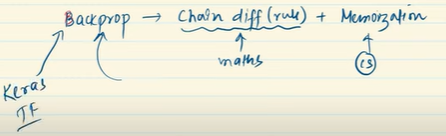 Backprop → Chain diff (rule) + Memorization
maths
CS
Keras
TF